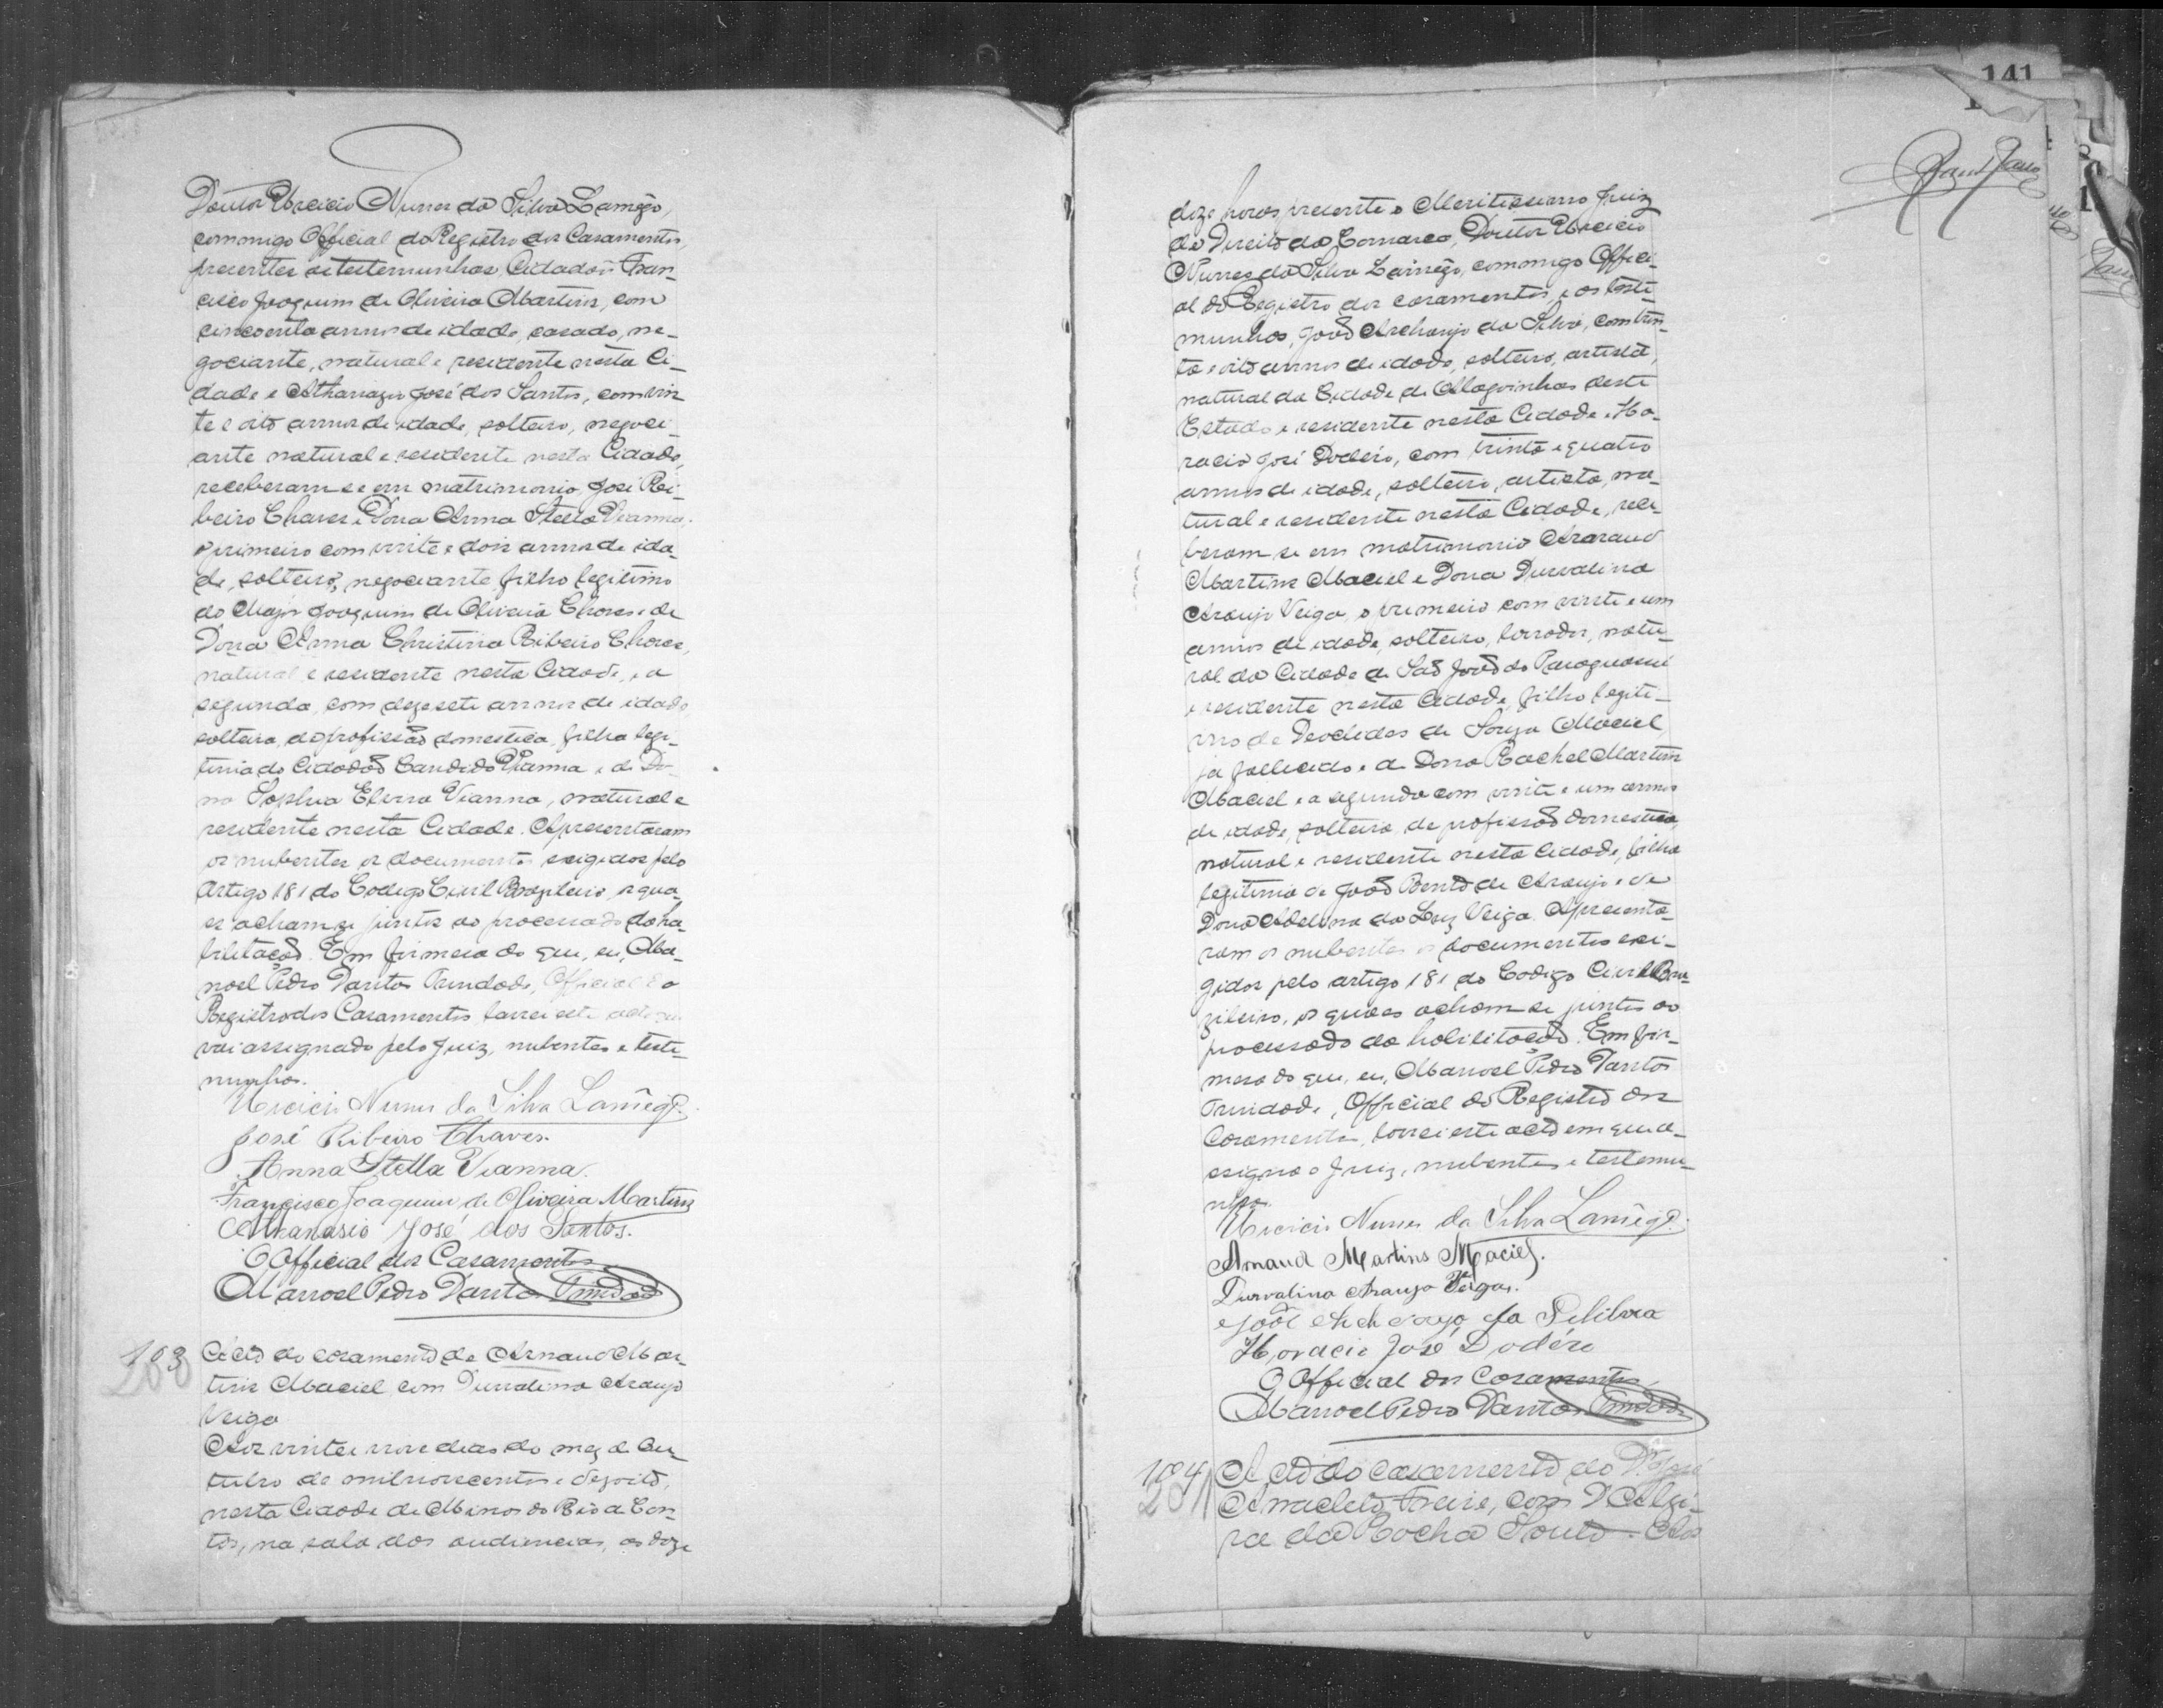 Doutor Uscicio Nunes da Silva Lamêgo,
commigo Official do Registro dos Casamentos,
presentes as testemunhas, Cidadãos Fran-
cisco Joaquim de Oliveira Martins, com
cincoenta annos de idade, casado, ne-
gociante, natural e residente nesta Ci-
dade e Athanazio José dos Santos, com vin-
te e oito annos de idade, solteiro, negoci-
ante natural e residente nesta Cidade,
receberam-se em matrimonio José Ri-
beiro Chaves e Dona Anna Stella Vianna,
o primeiro com vinte e dois annos de ida-
de, solteiro, negociante, filho legitimo
do Major Joaquim de Oliveira Chaves e de
Dona Anna Christina Ribeiro Chaves,
natural e residente nesta Cidade, e a
segunda, com dezesete annos de idade
solteira, de profissão domestica, filha legi-
tima do Cidadão Candido Vianna e de Do-
na Sophia Vianna, natural e
residente nesta Cidade. Apresentaram
os nubentes os documentos exigidos pelo
Artigo 181 do Codigo Civil Brazileiro, os qua-
es acham-se juntos ao processado da ha-
bilitação. Em firmeza do que, eu, Ma-
noel Pedro Dantas Trindade, Official do
Registro dos Casamentos, lavrei este acto que
vai assignado pelo Juiz, nubentes e teste-
munhas.
Nunes da Silva Lamêgo.
José Ribeiro Chaves.
Anna Stella Vianna.
Francisco Joaquim de Oliveira Martins
Athanasio José dos Santos.
O Official dos Casamentos
Manoel Pedro Dantas Trindade
103 Acto do casamento de Arnaud Mar-
tins Maciel com Durvalina Araujo
Veiga
Aos vinte e nove dias do mez de Ou-
tubro de mil novecentos e dezoito,
nesta Cidade de Minas do Rio de Con-
tas, na sala das audiencias, as doze
141
doze horas, presente o Meritissimo Juiz
de Direito da Comarca, Doutor Uscicio
Nunes da Silva Lamêgo, commigo Offici-
al do Registro dos casamentos, e as teste-
munhas, João Archanjo da Silva, com trin-
ta e oito annos de idade, solteiro, artista,
natural da Cidade de Alagoinhas deste
Estado e residente nesta Cidade e Ho-
racio José Dodéro, com trinta e quatro
annos de idade, solteiro, artista, na-
tural e residente nesta Cidade, rece-
beram-se em matrimonio Arnaud
Martins Maciel e Dona Durvalina
Araujo Veiga, o primeiro com vinte e um
annos de idade, solteiro, natu-
ral da Cidade de São João do Paraguassú
e residente nesta Cidade, filho legiti-
mo de Deoclides de Souza Maciel
ja fallecido e de Dona Rachel Martins
Maciel e a segunda com vinte e um annos
de idade, solteira, de profissão domestica,
natural e residente nesta Cidade, filha
legitima de João Bento de Araujo e de
Dona Adelina da Luz Veiga. Apresenta-
ram os nubentes os documentos exi-
gidos pelo artigo 181 do Codigo Civil Bra-
zileiro, os quaes acham-se juntos ao
processado da habilitação. Em fir-
meza do que, eu, Manoel Pedro Dantas
Trindade, Official do Registro dos
Casamentos, lavrei este acto em que as-
signa o Juiz, nubentes e testemu-
nhas.
Nunes da Silva Lamêgo.
Arnaud Martins Maciel.
Durvalina Araujo Veiga.
João da
Horacio José Dodéro
O Official dos Casamentos,
Manoel Pedro Dantas Trindade
104 Acto do casamento do Dr. José
Anacleto Freire, com D. Alzi-
ra da Rocha Souto. Aos